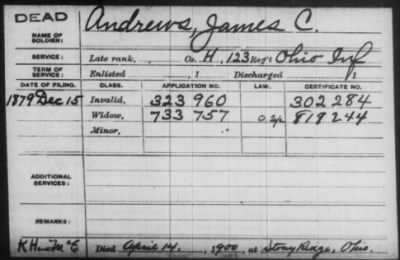 DEAD
NAME OF SOLDIER: Andrews, James C.
SERVICE: Late rank, Co. H, 123 Reg't Ohio Inf
TERM OF SERVICE: Enlisted , 1 Discharged , 1
DATE OF FILING. CLASS. APPLICATION NO. LAW. CERTIFICATE NO.
1879 Dec 15 Invalid, 323 960 302 284
Widow, 733 757 819 244
Minor,
ADDITIONAL SERVICES:
REMARKS:
Died April 14, 1900, at Stony Ridge, Ohio.